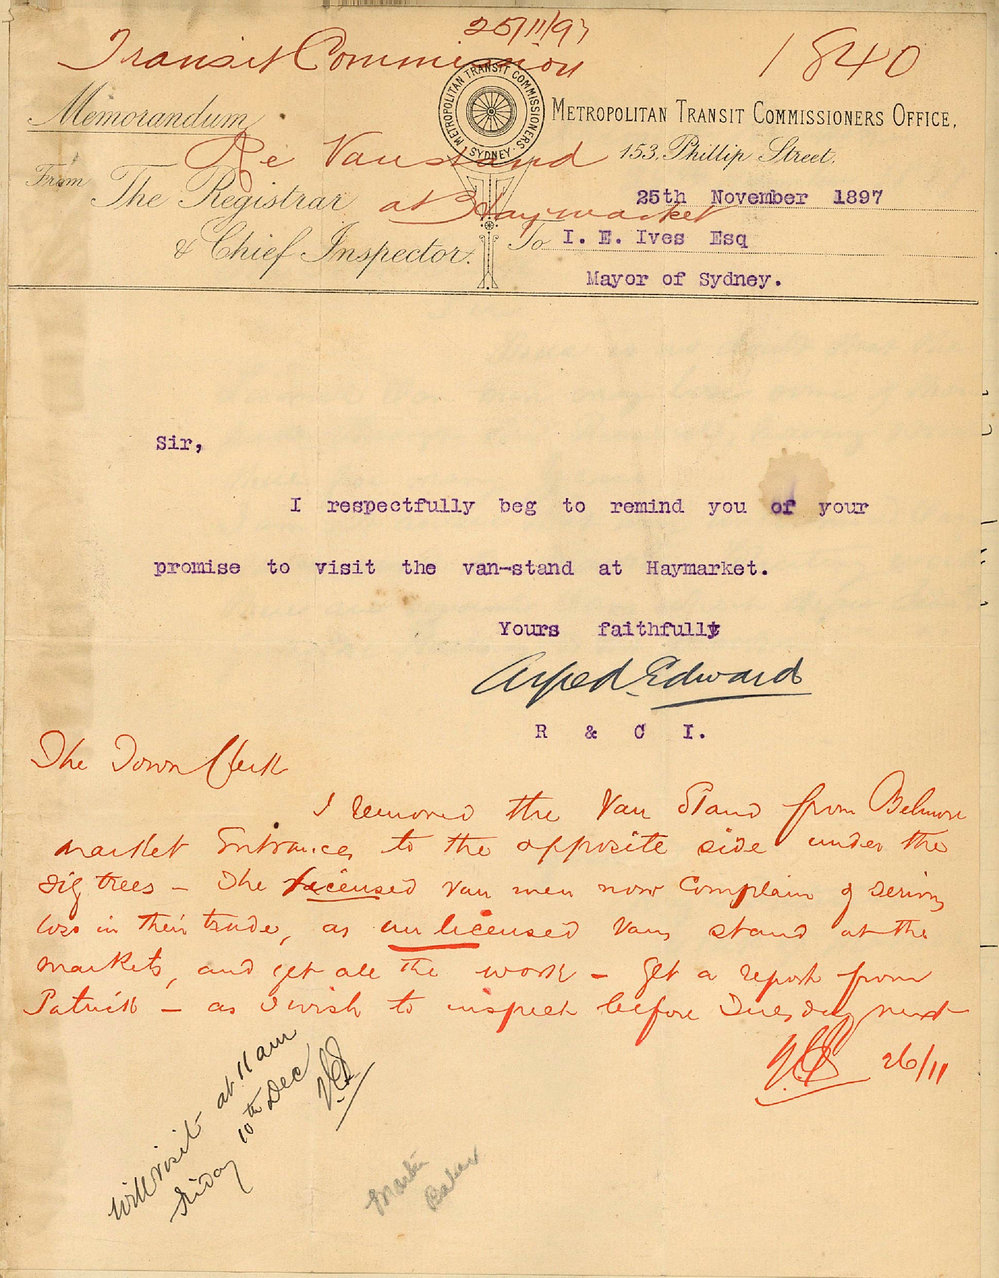 25/11/97
Transit Commission
1840
METROPOLITAN TRANSIT COMMISSIONERS
SYDNEY
Memorandum
METROPOLITAN TRANSIT COMMISSIONERS OFFICE,
Re Vanstand
153, Phillip Street.
at Haymarket
From The Registrar
& Chief Inspector.
25th November 1897
To I. E. Ives Esq
Mayor of Sydney.
Sir,
I respectfully beg to remind you of your
promise to visit the van-stand at Haymarket.
Yours faithfully
Alfred Edward
R & C I.
The Town Clerk
I removed the Van Stand from Belmore
market Entrances to the opposite side under the
big trees – The licensed van men now Complain of serious
loss in their trade, as unlicensed Vans stand at the
markets, and get all the work – Get a report from
– as I wish to inspect before Tuesday next
26/11
Will visit at 11 am
Friday 10th Dec